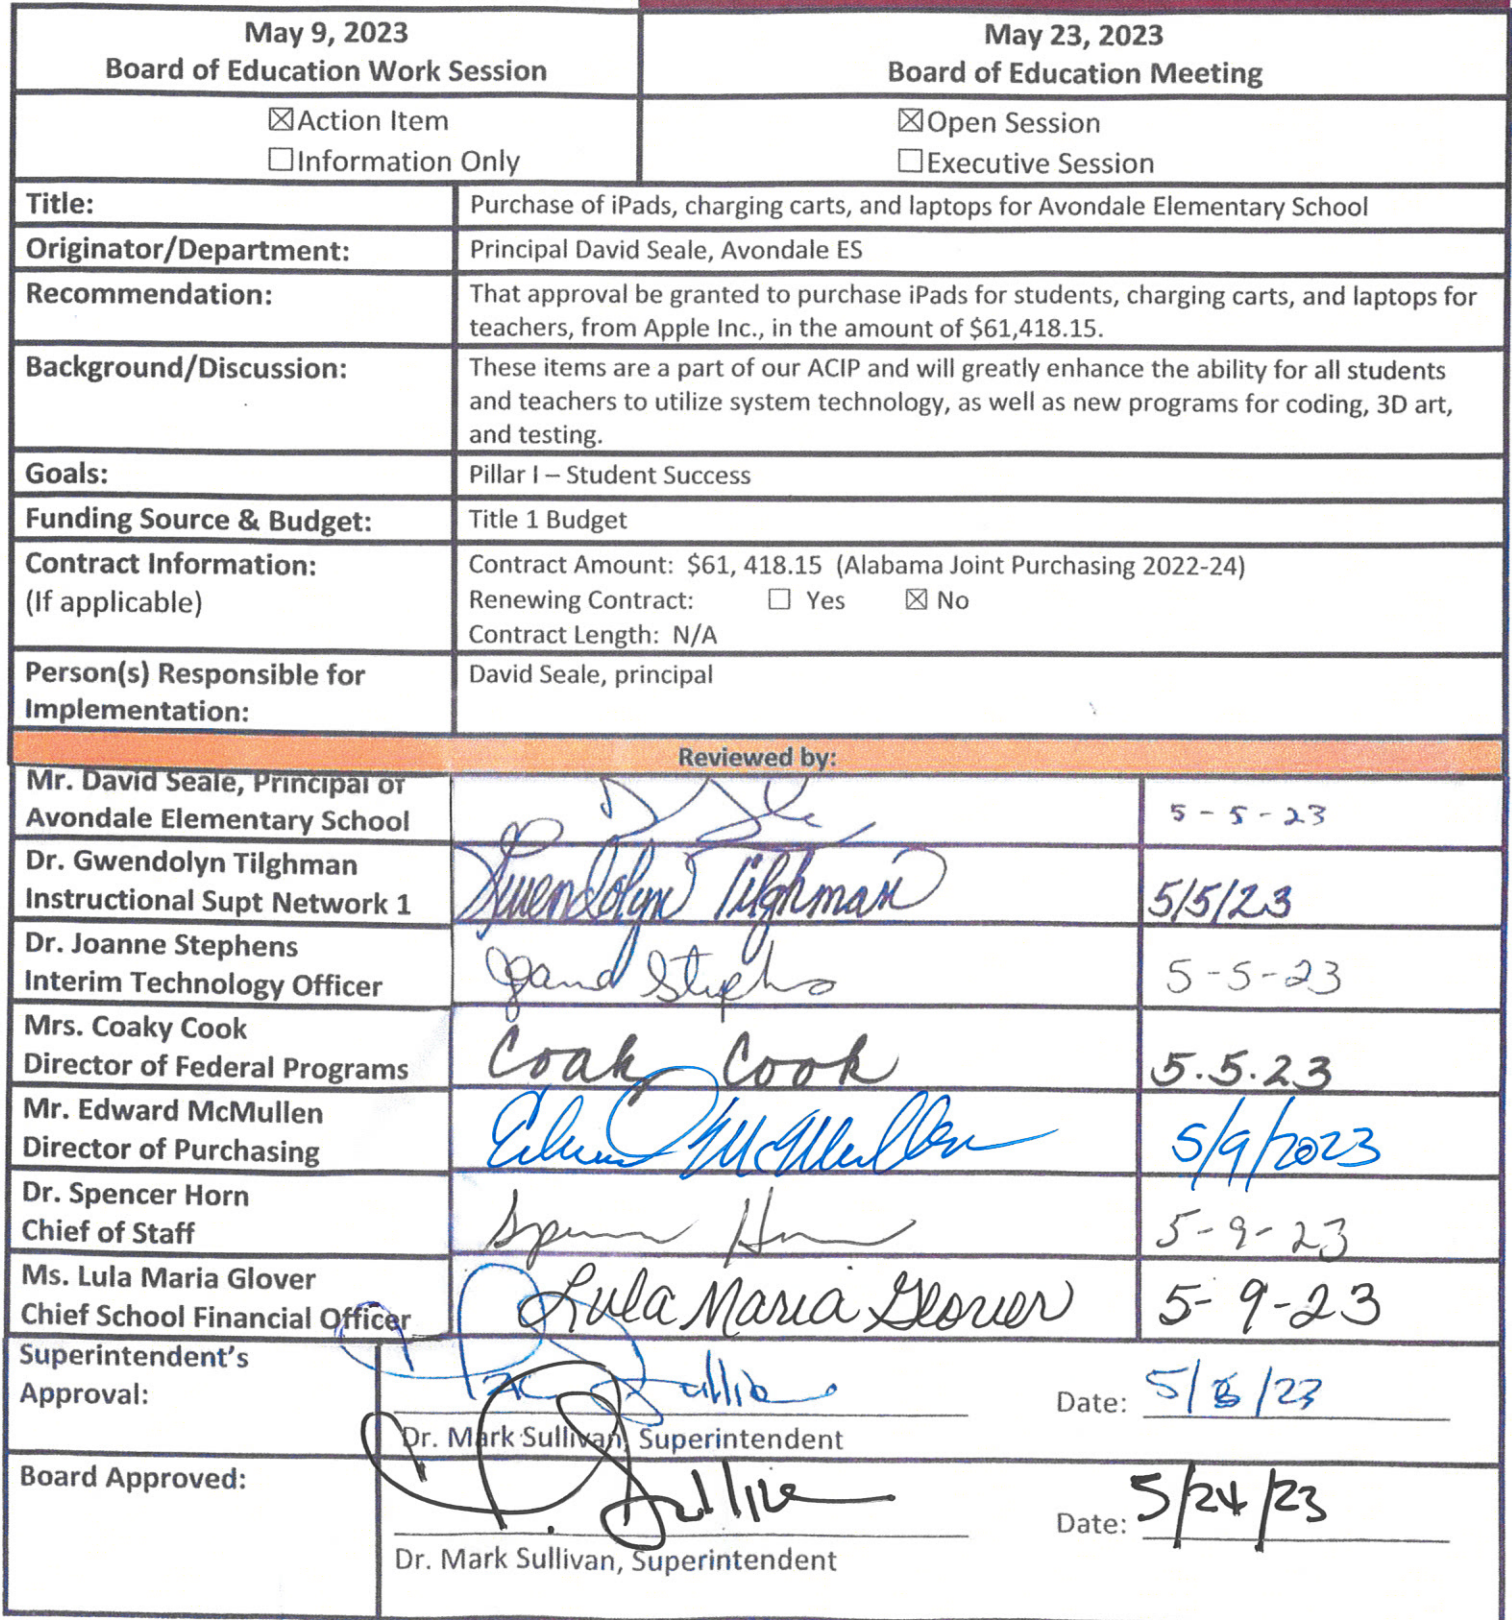 May 9, 2023
Board of Education Work Session
May 23, 2023
Board of Education Meeting
☒Action Item
☐Information Only
☒Open Session
☐Executive Session
Title:
Purchase of iPads, charging carts, and laptops for Avondale Elementary School
Originator/Department:
Principal David Seale, Avondale ES
Recommendation:
That approval be granted to purchase iPads for students, charging carts, and laptops for
teachers, from Apple Inc., in the amount of $61,418.15.
Background/Discussion:
These items are a part of our ACIP and will greatly enhance the ability for all students
and teachers to utilize system technology, as well as new programs for coding, 3D art,
and testing.
Goals:
Pillar I – Student Success
Funding Source & Budget:
Title 1 Budget
Contract Information:
(If applicable)
Contract Amount: $61, 418.15 (Alabama Joint Purchasing 2022-24)
Renewing Contract: ☐ Yes ☒ No
Contract Length: N/A
Person(s) Responsible for
Implementation:
David Seale, principal
Reviewed by:
Mr. David Seale, Principal of
Avondale Elementary School
5-5-23
Dr. Gwendolyn Tilghman
Instructional Supt Network 1
Gwendolyn Tilghman
5/5/23
Dr. Joanne Stephens
Interim Technology Officer
5-5-23
Mrs. Coaky Cook
Director of Federal Programs
Coaky Cook
5.5.23
Mr. Edward McMullen
Director of Purchasing
Edward McMullen
5/9/2023
Dr. Spencer Horn
Chief of Staff
5-9-23
Ms. Lula Maria Glover
Chief School Financial Officer
Lula Maria Glover
5-9-23
Superintendent's
Approval:
Date:
Dr. Mark Sullivan, Superintendent
Board Approved:
Date: 5/24/23
Dr. Mark Sullivan, Superintendent